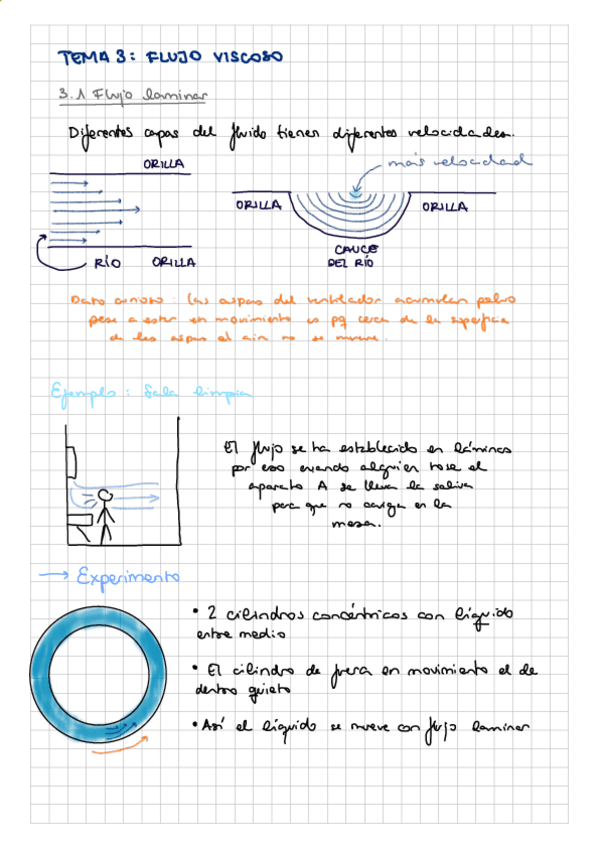 TEMA 3: FLUJO VISCOSO
3.1 Flujo laminar
Diferentes capas del fluido tienen diferentes velocidades.
ORILLA
más velocidad
ORILLA
ORILLA
RÍO
ORILLA
CAUCE
DEL RÍO
Dato curioso: las aspas del ventilador acumulan polvo
pese a estar en movimiento es pq cerca de la superficie
de las aspas el aire no se mueve.
Ejemplo: Sala limpia
El flujo se ha establecido en láminas
por eso cuando alguien tose el
aparato A se lleva la saliva
para que no caiga en la
mesa.
→ Experimento
• 2 cilindros concéntricos con líquido
entre medio
• El cilindro de fuera en movimiento el de
dentro quieto
• Así el líquido se mueve con flujo laminar